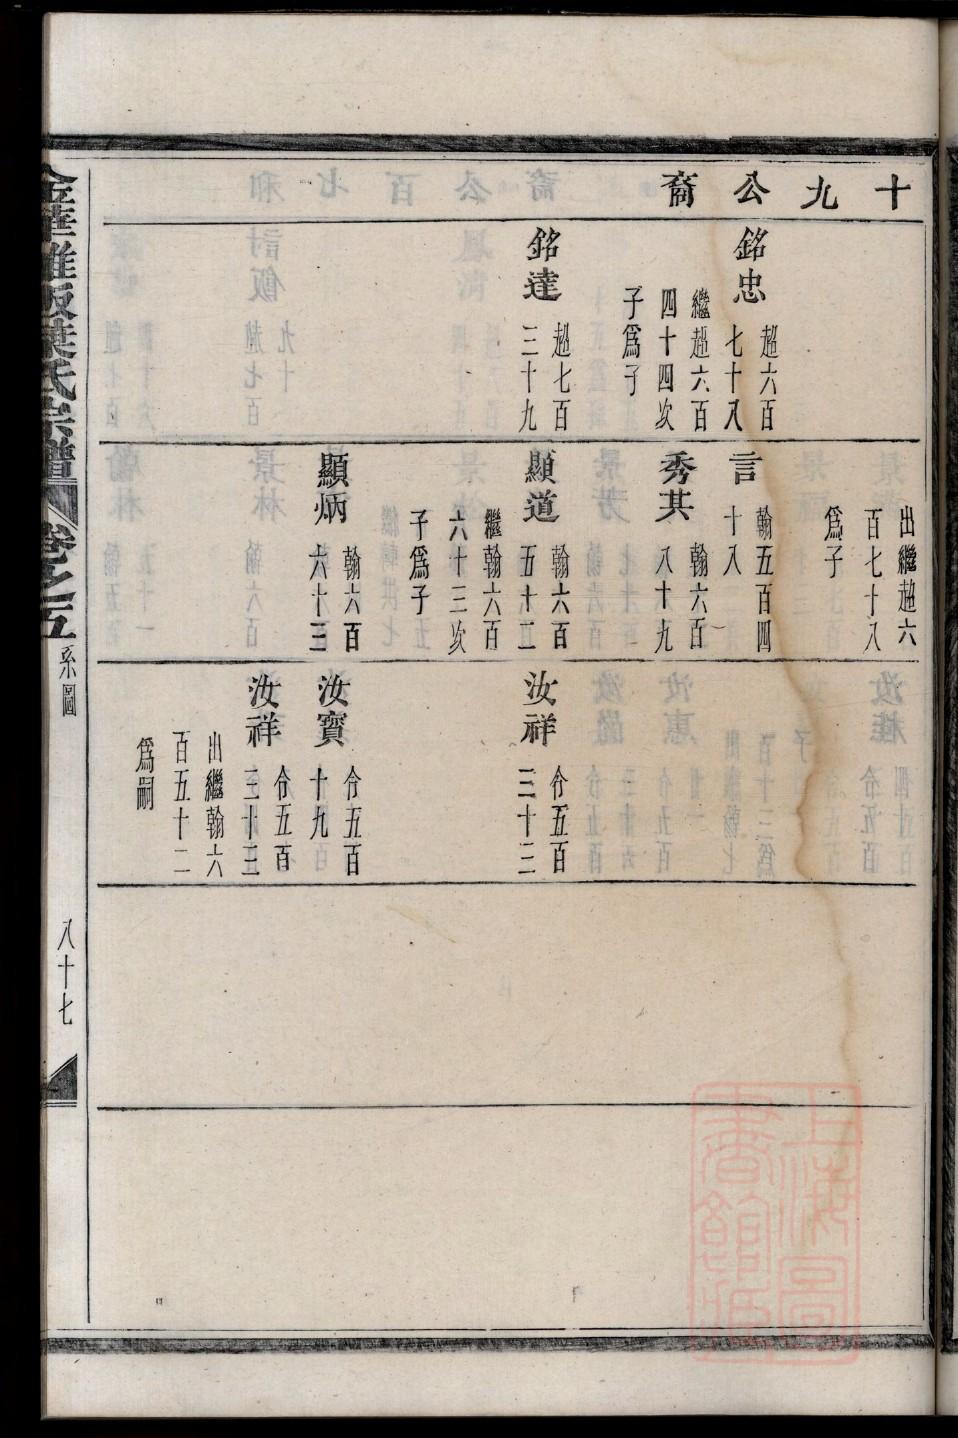 十九公裔
銘忠
超六百
七十八
繼超六百
四十四次
子爲子
銘達
超七百
三十九
出繼超六
百七十八
爲子
言
翰五百四
十八
秀其
翰六百
八十九
顯道
翰六百
五十二
繼翰六百
六十三次
子爲子
顯炳
翰六百
六十三
汝祥
令五百
三十三
汝寶
令五百
十九
汝祥
令五百
三十三
出繼翰六
百五十二
爲嗣
葉氏宗譜
卷之五
系圖
八十七
上海圖書館藏